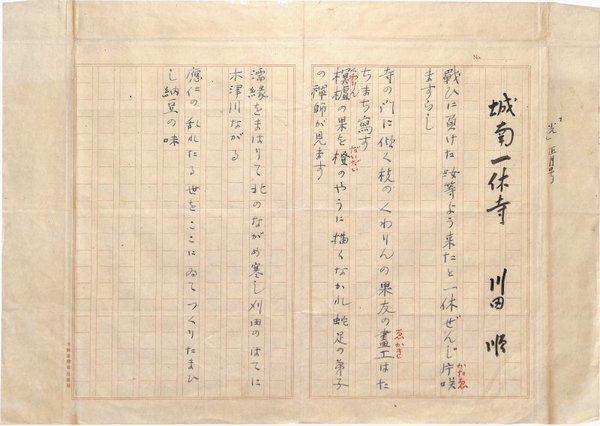 「光」正月号
No.
城南一休寺 川田順
戰ひに負けた汝等よう来たと一休ぜんじ片咲
かたゑ
ますらし
寺の門に傾く枕のくわりんの果友の畫工はた
ゑかき
ちまち寫す
榠樝の果を橙のやうに描くなかれ蛇足の弟子
くわりん
だいだい
の禅師が見ます
濡縁をまはりて北のながめ寒し刈田のはてに
木津川ながる
應仁の乱れたる世をここにゐてつくりたまひ
し納豆の味